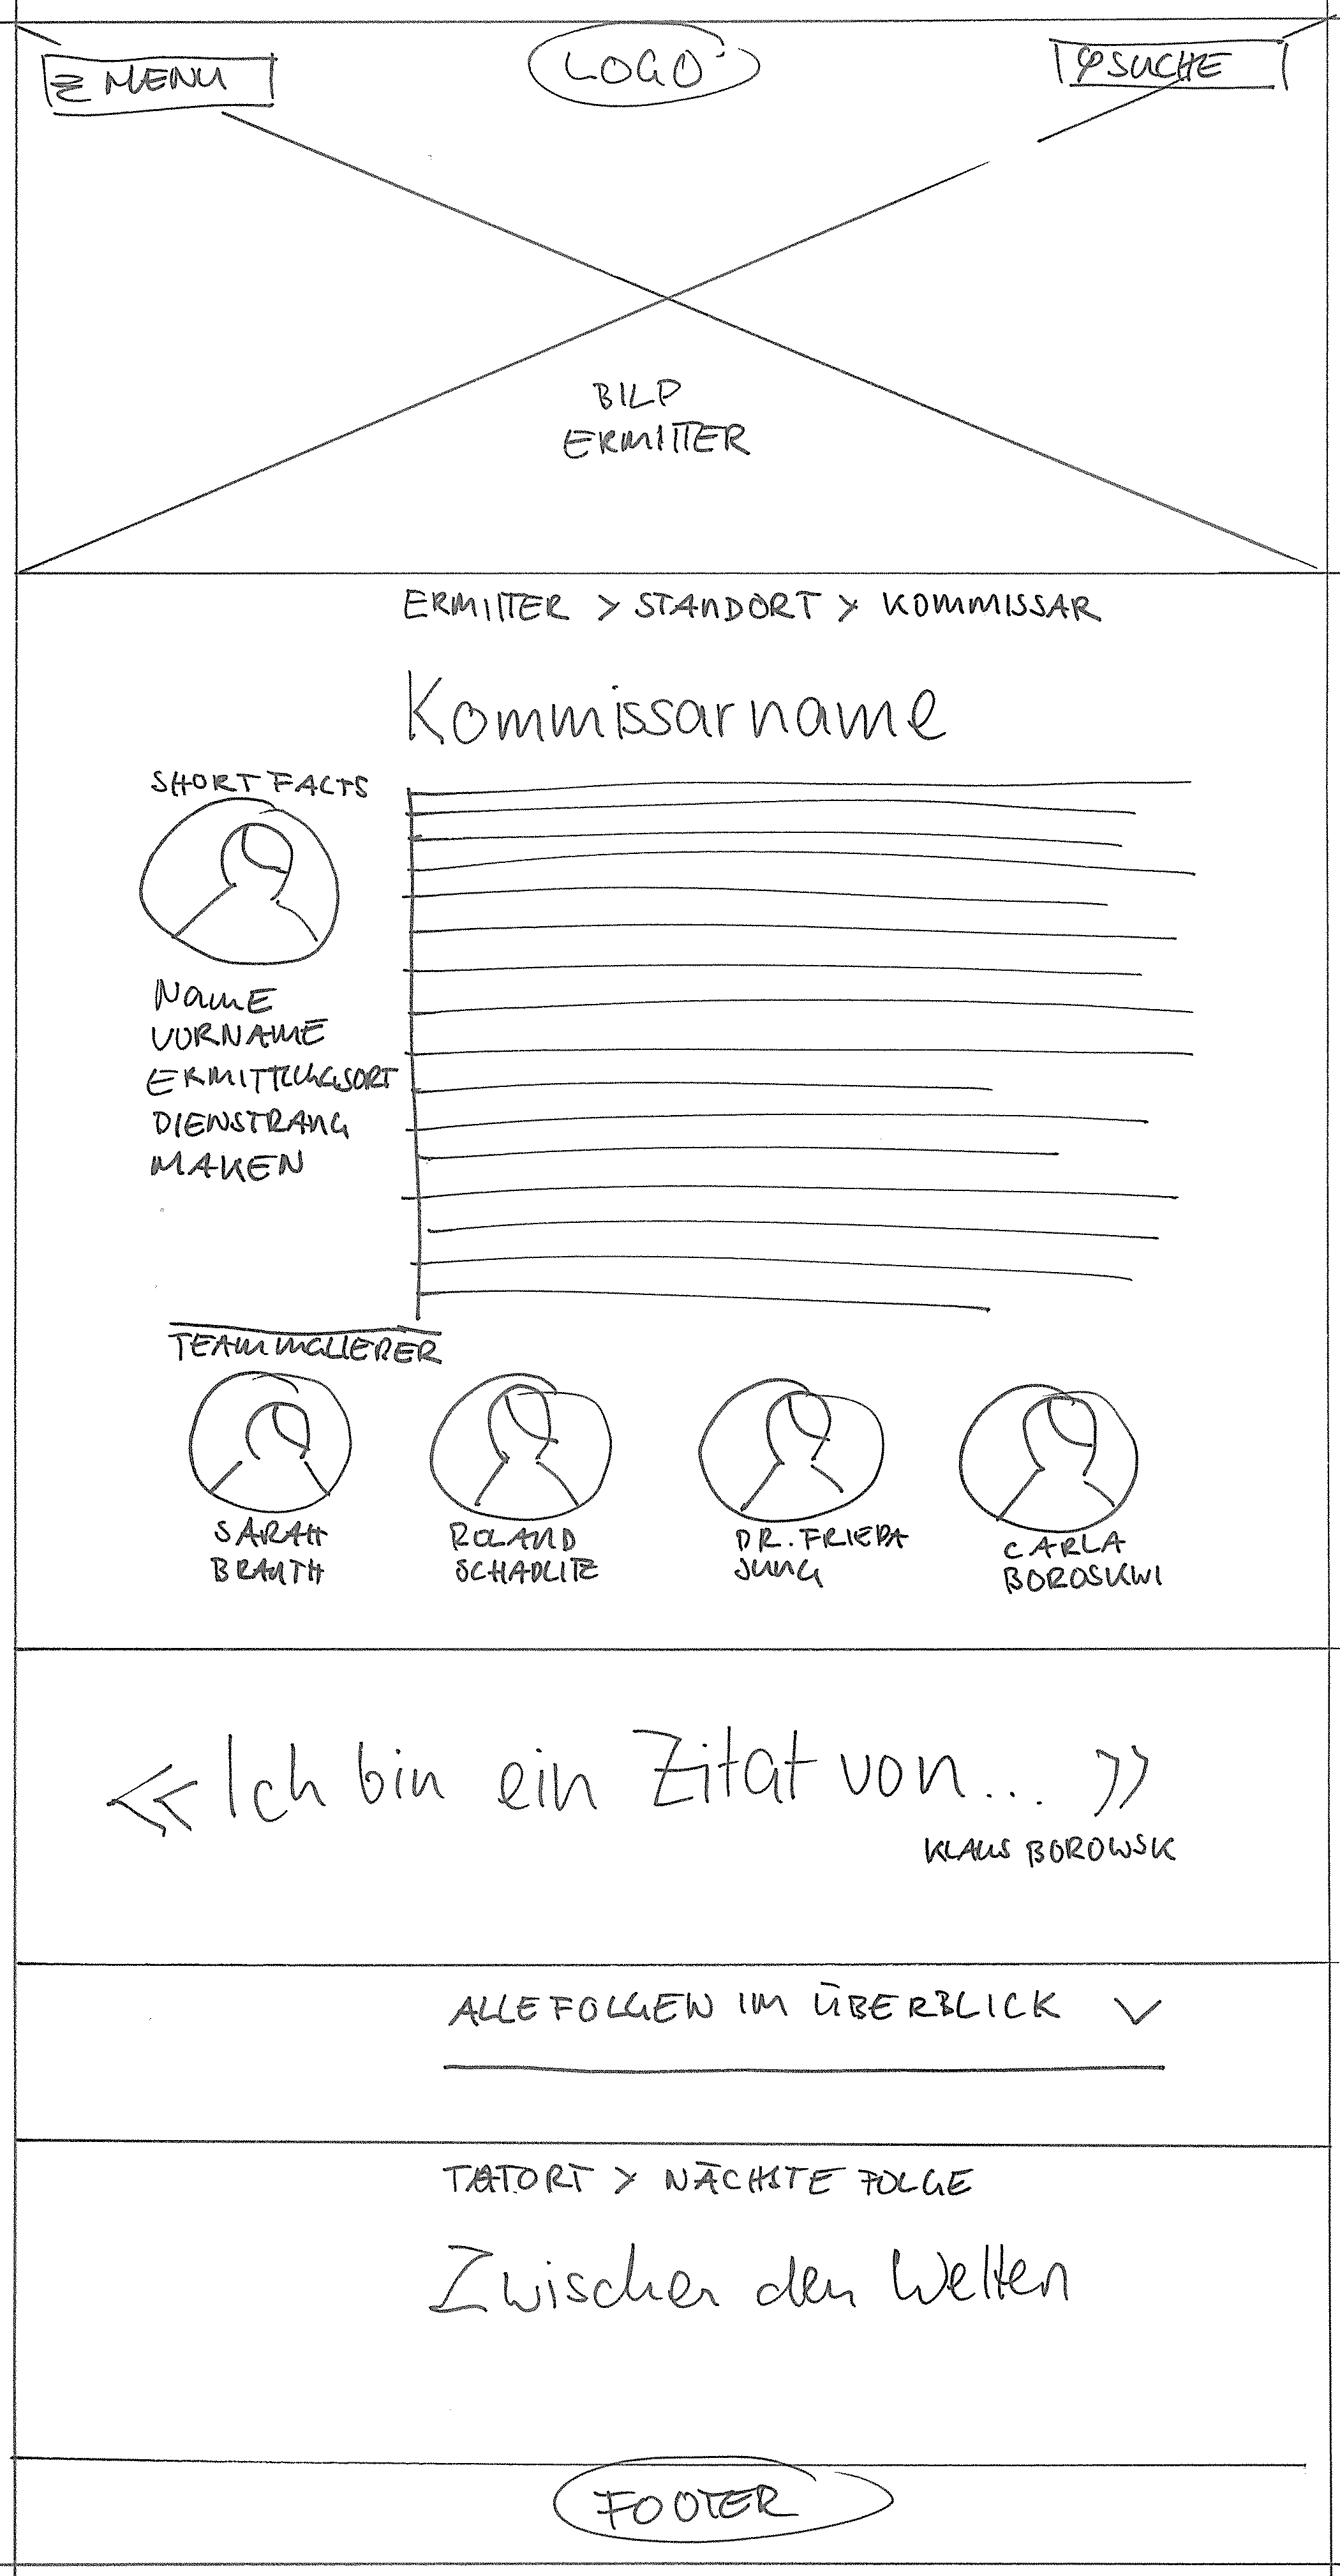 MENU
LOGO
SUCHE
BILD
ERMITTER
ERMITTER > STANDORT > KOMMISSAR
Kommissarname
SHORT FACTS
NAME
VORNAME
ERMITTLUNGSORT
DIENSTRANG
MAKEN
TEAMMGLIEDER
SARAH
BRANTH
ROLAND
SCHADLITZ
DR. FRIEDA
JUNG
CARLA
BOROSKWI
<< Ich bin ein Zitat von... >>
KLAUS BOROWSK
ALLE FOLGEN IM ÜBERBLICK
TATORT > NÄCHSTE FOLGE
Zwischen den Welten
FOOTER